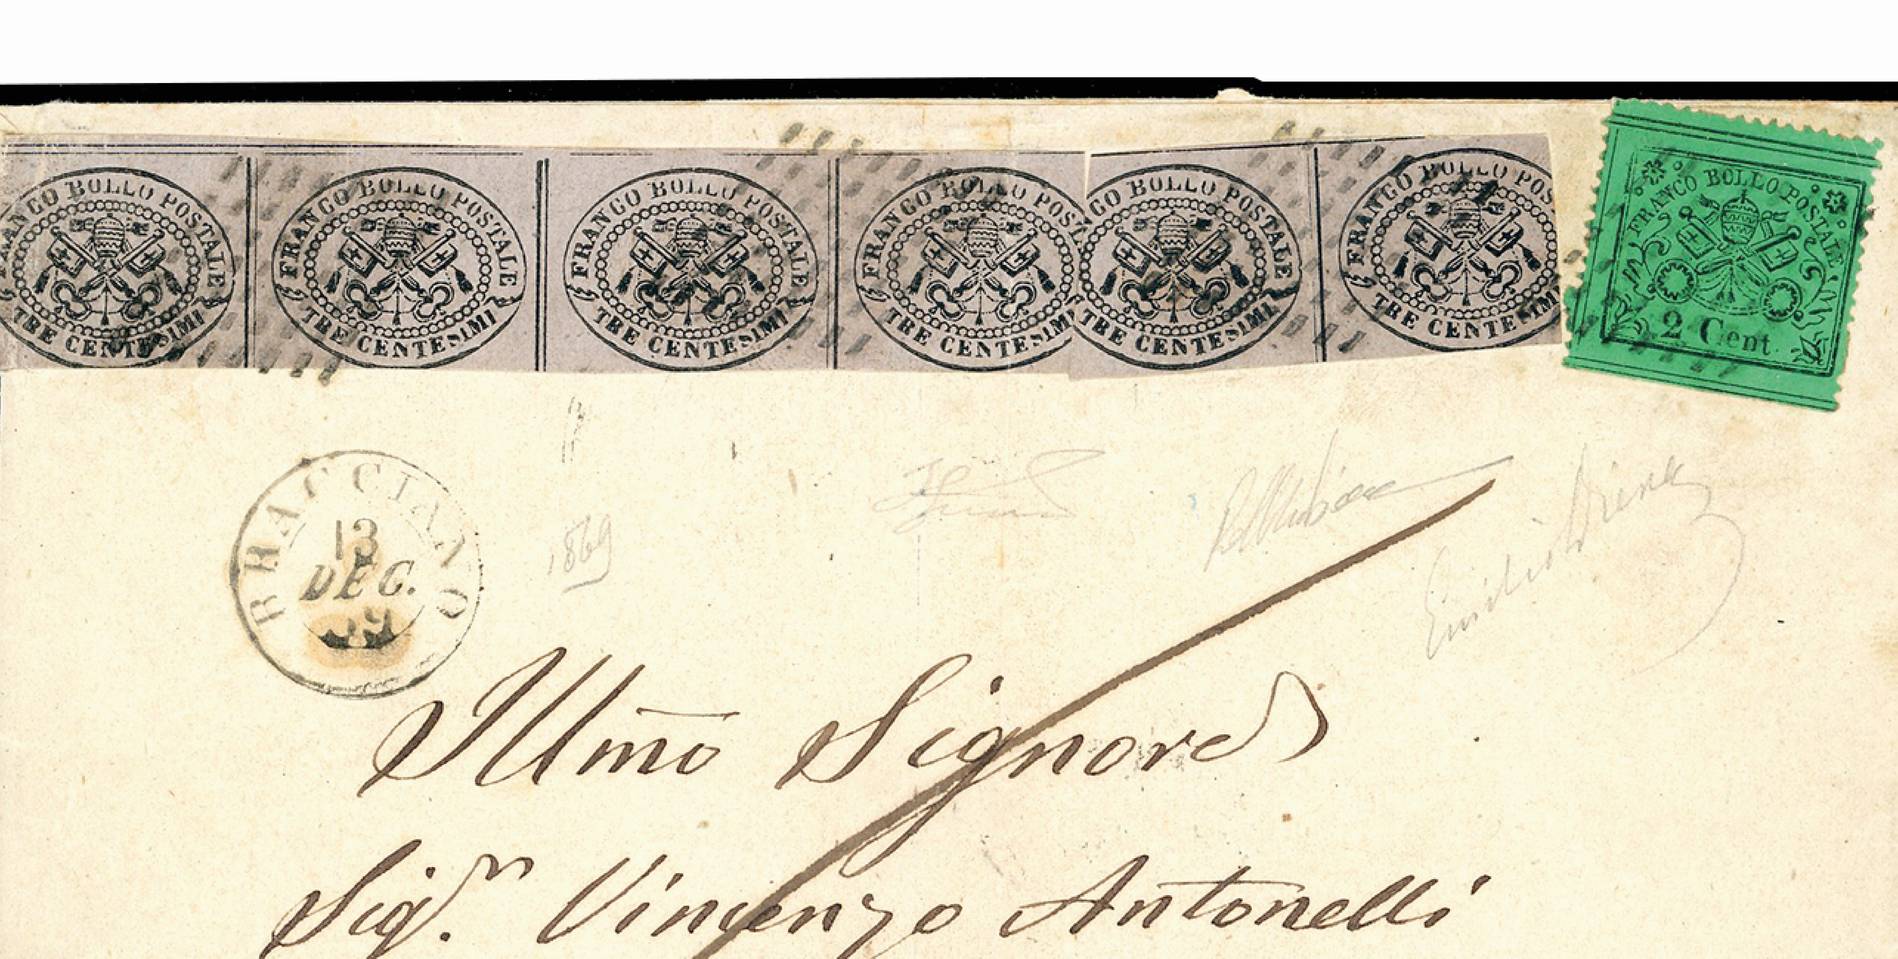 FRANCO BOLLO POSTALE TRE CENTESIMI
FRANCO BOLLO POSTALE TRE CENTESIMI
FRANCO BOLLO POSTALE TRE CENTESIMI
FRANCO BOLLO POSTALE TRE CENTESIMI
FRANCO BOLLO POSTALE TRE CENTESIMI
FRANCO BOLLO POSTALE TRE CENTESIMI
FRANCO BOLLO POSTALE
2 Cent
BRACCIANO
13
DEC.
69
1869
Emilio Diena
Illmo Signore
Sigr. Vincenzo Antonelli